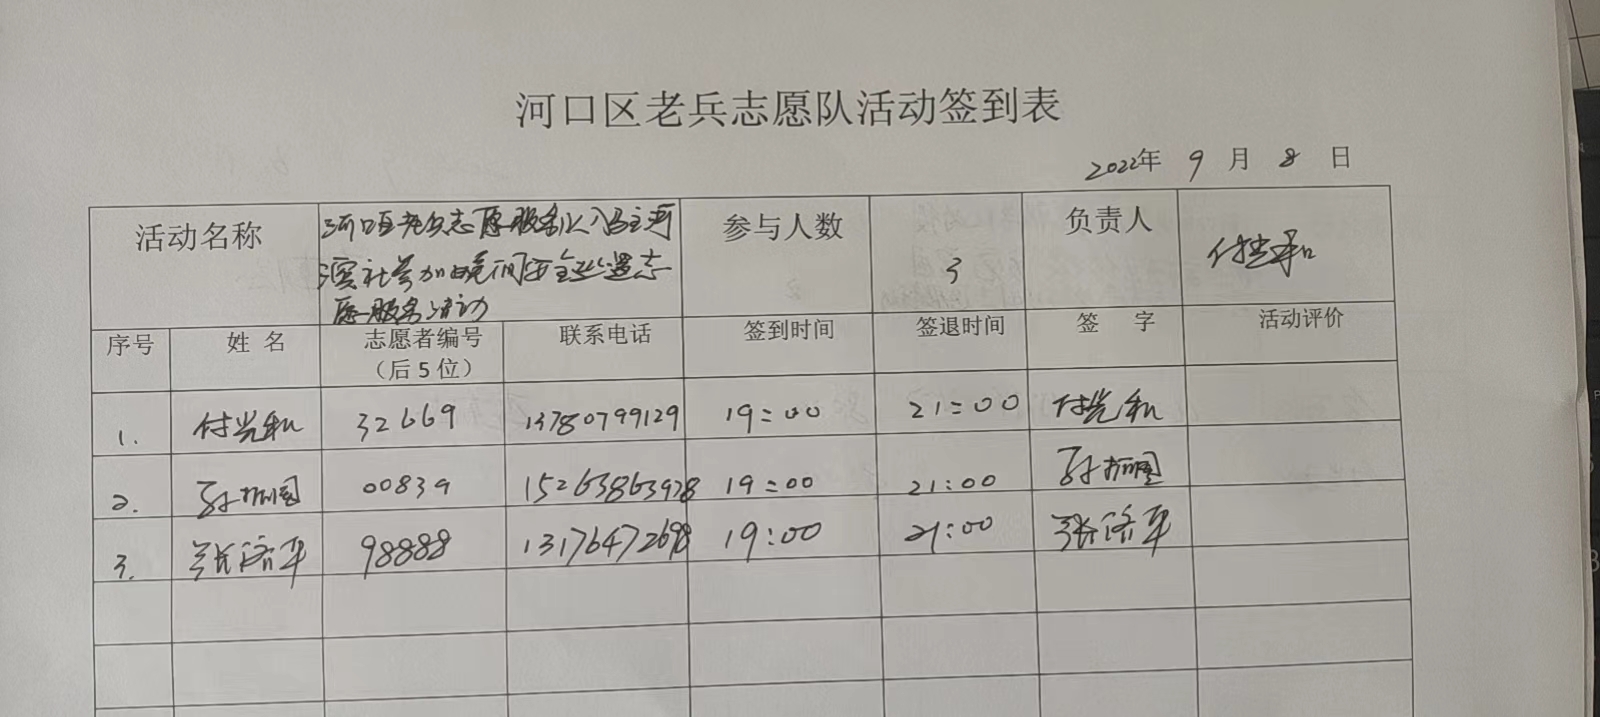 河口区老兵志愿队活动签到表
2022年 9 月 8 日
活动名称
河口区老兵志愿服务队
滨社参加晚间安全巡逻志
愿服务活动
参与人数 3
负责人 付光和
序号 姓名 志愿者编号 联系电话 签到时间 签退时间 签 字 活动评价
(后5位)
1. 付光和 32669 13780799129 19:00 21:00 付光和
2. 00839 15263863928 19:00 21:00
3. 张济平 98888 13176472698 19:00 21:00 张济平